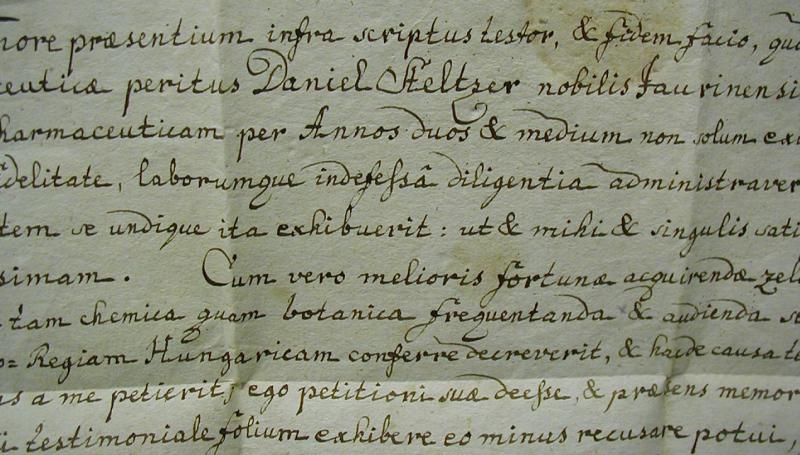 nore præsentium infra scriptus testor, & fidem facio, quo
ceuticæ peritus Daniel Steltzer nobilis Jaurinensi
harmaceuticam per Annos duos & medium non solum exa
idelitate, laborumque indefessâ diligentiâ administraver
tem se undique ita exhibuerit: ut & mihi & singulis sati
simam. Cum vero melioris fortunæ acquirendæ zel
tam chemica quam botanica frequentanda & audienda s
o= Regiam Hungaricam conferre decreverit, & hac de causa te
us a me petierit, ego petitioni suæ deesse, & præsens memor
i testimoniale folium exhibere eo minus recusare potui,